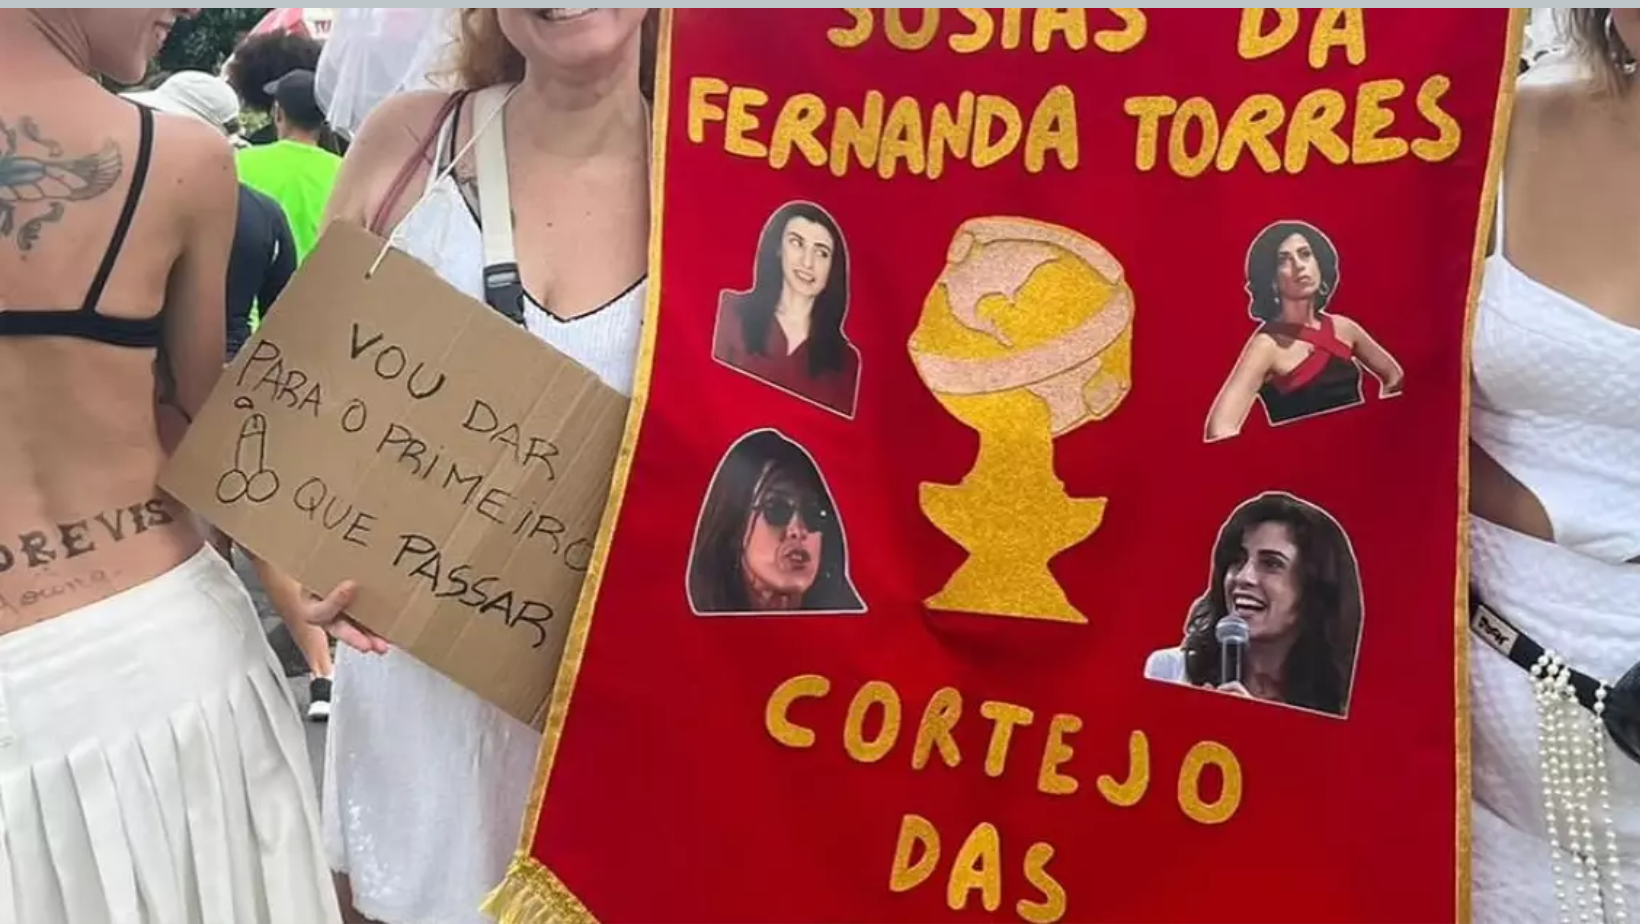 SÓSIAS DA
FERNANDA TORRES
CORTEJO
DAS
VOU DAR
PARA O PRIMEIRO
QUE PASSAR
OREVIS